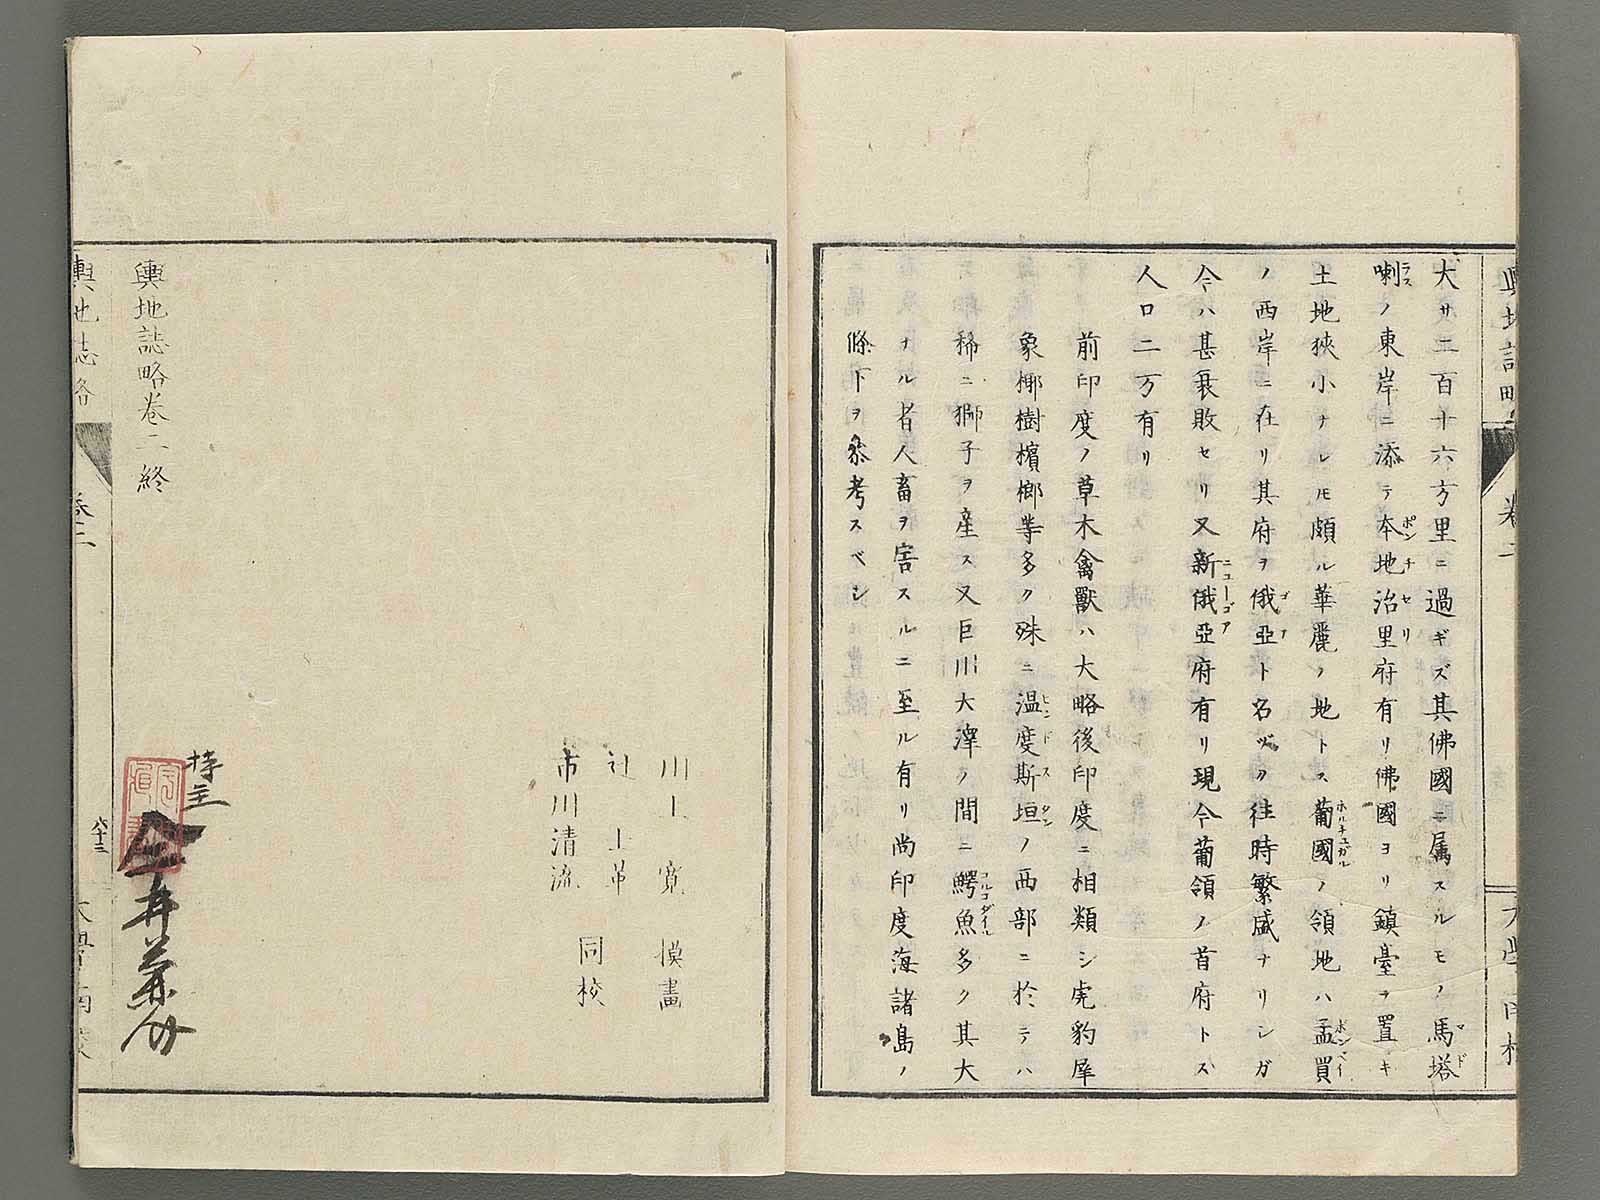 大サ二百十六方里ニ過ギズ其佛國ニ属スルモノ馬塔
マド
喇ノ東岸ニ添テ本地治里府有リ佛國ヨリ鎮臺ヲ置キ
ラス ポンチセリ
土地狹小ナレ𪜈頗ル華麗ノ地トス葡國ノ領地ハ孟買
ホルチユガル ボンベイ
ノ西岸ニ在リ其府ヲ俄亞ト名ヅク往時繁盛ナリシガ
ゴア
今ハ甚衰敗セリ又新俄亞府有リ現今葡領ノ首府トス
ニユーゴア
人口二万有リ
前印度ノ草木禽獸ハ大略後印度ニ相類シ虎豹犀
象椰樹檳榔等多ク殊ニ温度斯垣ノ西部ニ於テハ
ヒンドスタン
稀ニ獅子ヲ産ス又巨川大澤ノ間ニ鰐魚多ク其大
コルコダイル
ナル者人畜ヲ害スルニ至ル有リ尚印度海諸島ノ
條下ヲ參考スベシ
川上寛 模畫
辻士革
市川清流 同校
輿地誌略卷二終
持主
輿地誌略 卷二 八十三 大學南校